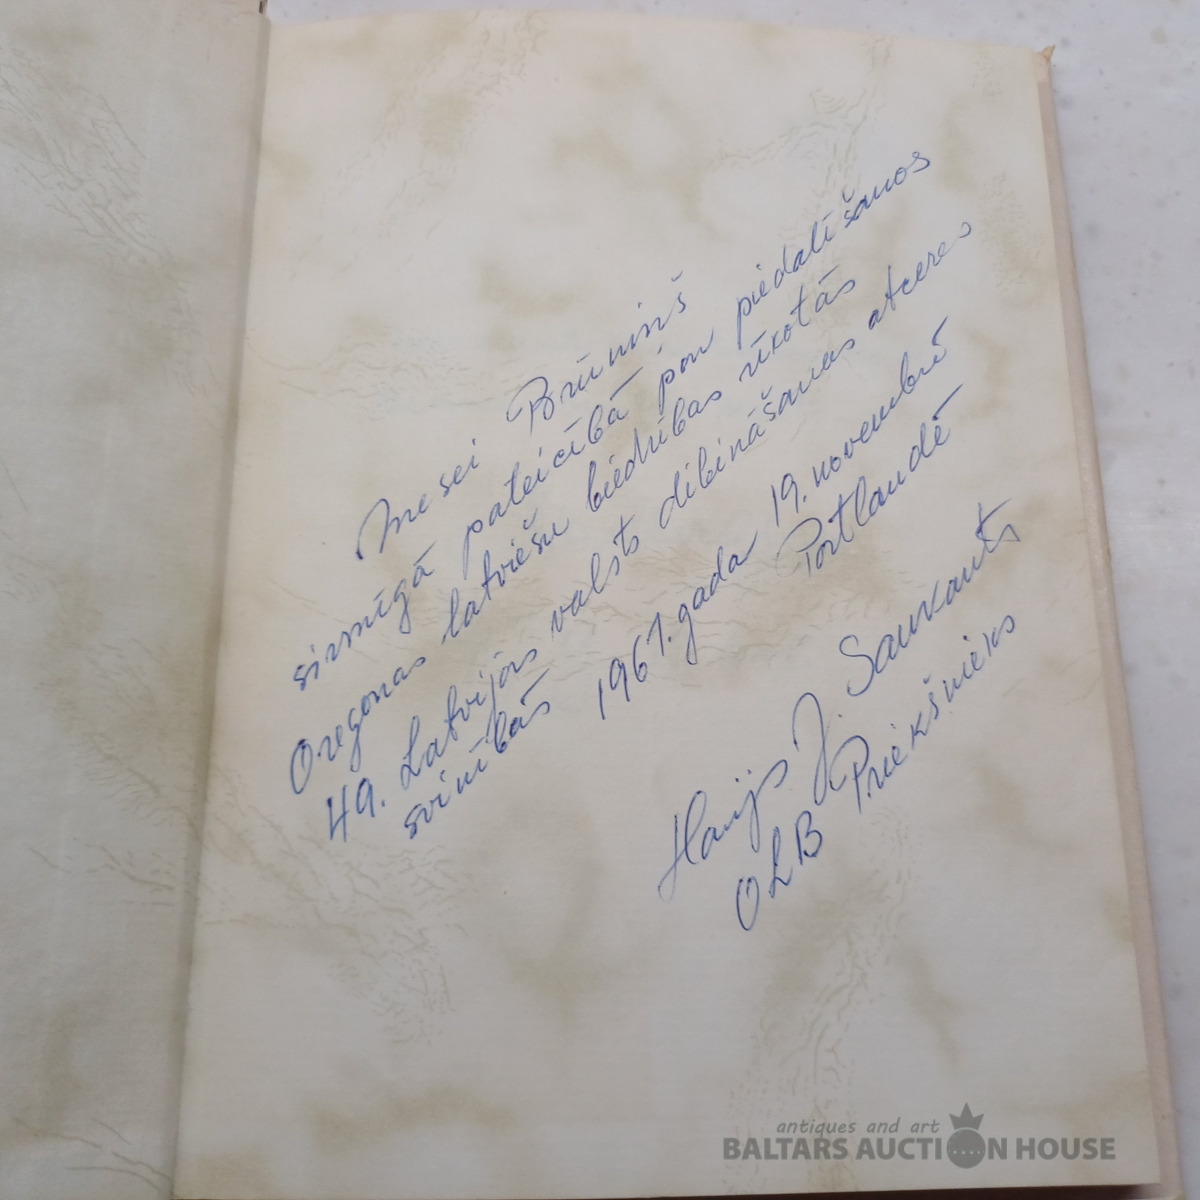 Mesei Brūniņš
sirsnīgā pateicībā par piedalīšanos
Oregonas latviešu biedrības rīkotās
49. Latvijas valsts dibināšanas atceres
svinībās 1967. gada 19. novembrī
Portlandē
J. Saukants
OLB Priekšnieks
antiques and art
BALTARS AUCTION HOUSE